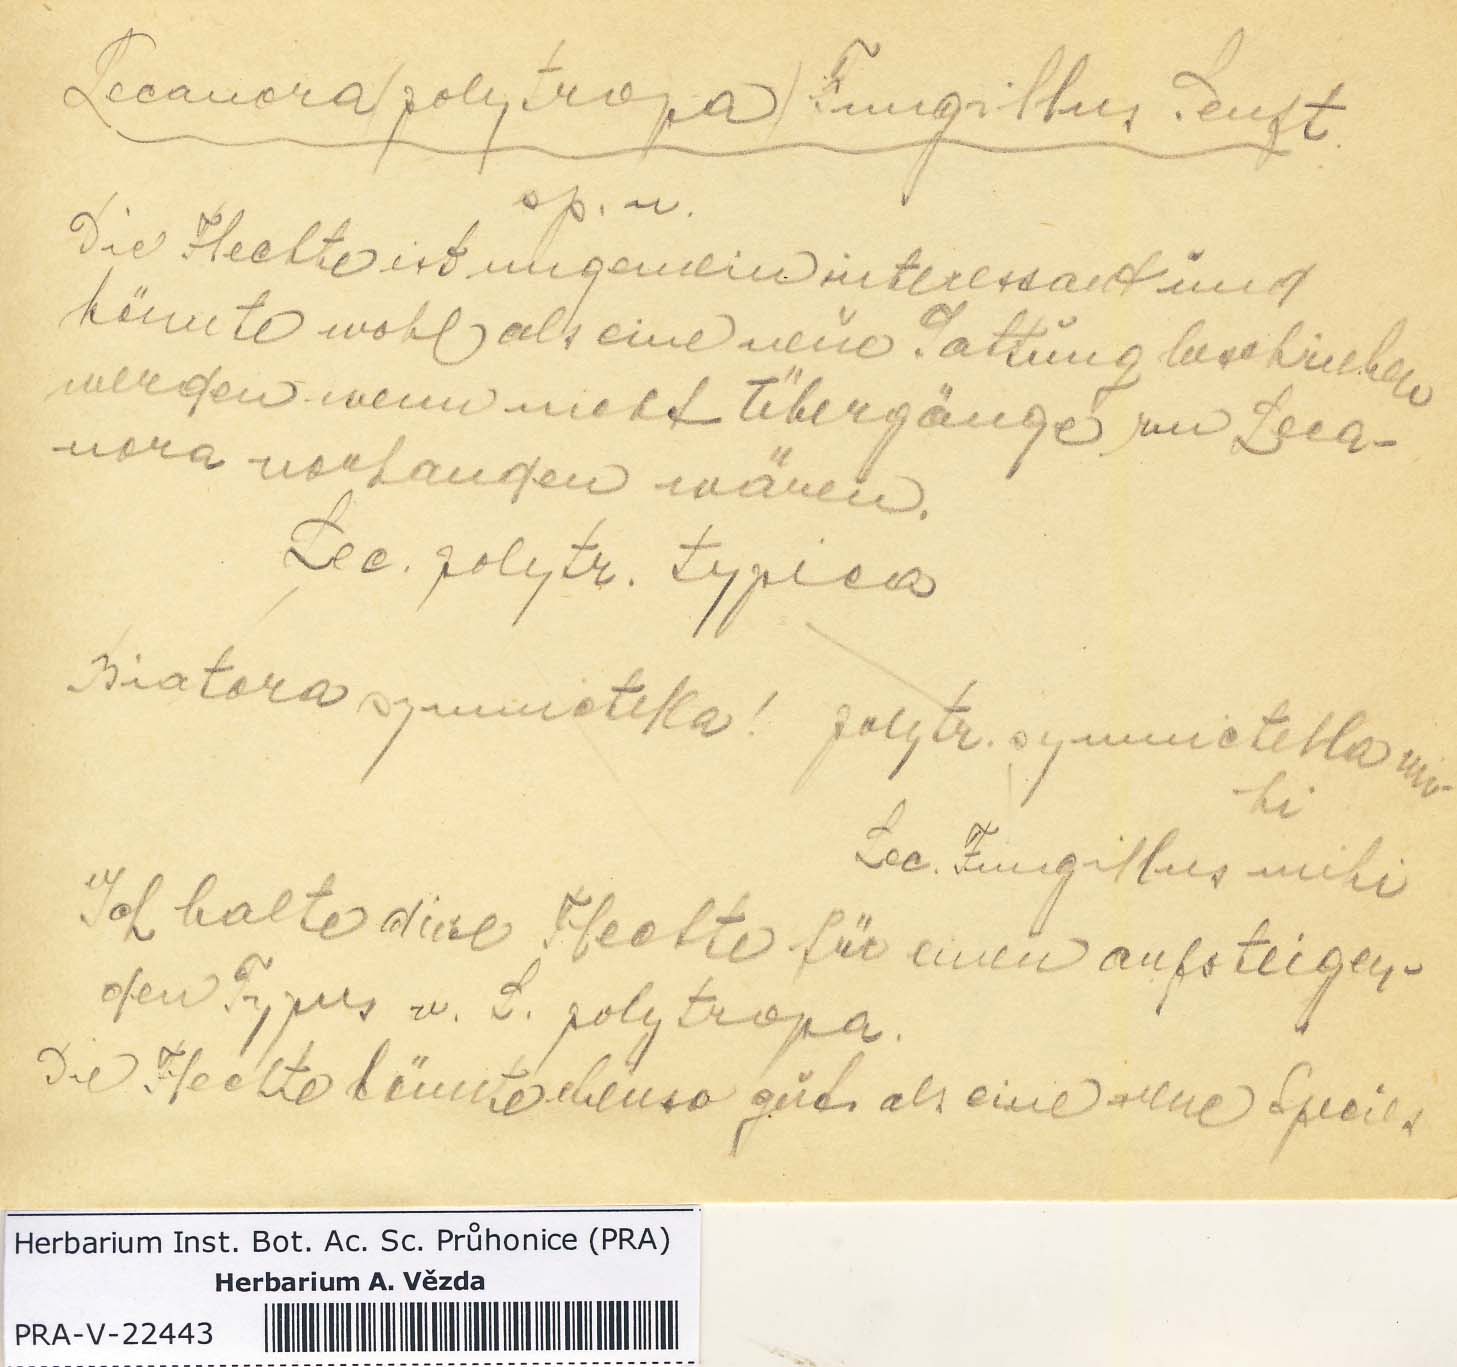 Lecanora (polytropa) Fungillus
sp. n.
Die Flechte ist ungemein interessant und
könnte wohl als eine neue Gattung beschrieben
werden wenn nicht Übergänge zu Leca-
nora vorhanden wären.
Lec. polytr. typica
Biatora symmictella! polytr. symmictella mi-
hi
Lec. Fungillus mihi
Ich halte diese Flechte für einen aufsteigen-
den Typus v. L. polytropa.
Die Flechte könnte ebenso gut als eine neue Species
Herbarium Inst. Bot. Ac. Sc. Průhonice (PRA)
Herbarium A. Vězda
PRA-V-22443